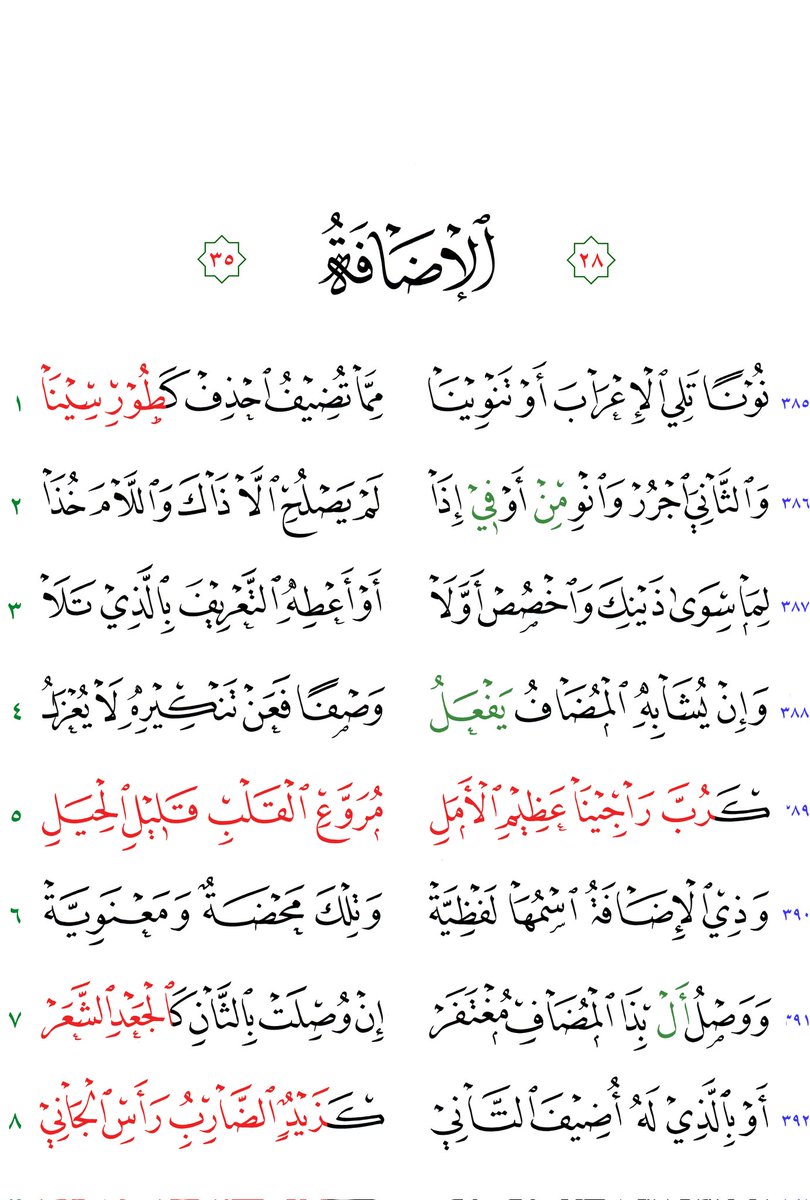 ٢٨ ٱلْإِضَافَةُ ٣٥
٣٨٥ نُوْنًا تَلِي ٱلْإِعْرَابَ أَوْ تَنْوِيْنَا مِمَّا تُضِيْفُ ٱحْذِفْ كَطُوْرِ سِيْنَا ١
٣٨٦ وَٱلثَّانِيَ ٱجْرُرْ وَٱنْوِ مِنْ أَوْ فِيْ إِذَا لَمْ يَصْلُحِ ٱلَّا ذَاكَ وَٱللَّامَ خُذَا ٢
٣٨٧ لِمَا سِوَىٰ ذَيْنِكَ وَٱخْصُصْ أَوَّلَا أَوْ أَعْطِهِ ٱلتَّعْرِيْفَ بِٱلَّذِيْ تَلَا ٣
٣٨٨ وَإِنْ يُشَابِهِ ٱلْمُضَافُ يَفْعَلُ وَصْفًا فَعَنْ تَنْكِيْرِهِ لَا يُعْزَلُ ٤
٣٨٩ كَرُبَّ رَاجِيْنَا عَظِيْمِ ٱلْأَمَلِ مُرَوَّعِ ٱلْقَلْبِ قَلِيْلِ ٱلْحِيَلِ ٥
٣٩٠ وَذِيْ ٱلْإِضَافَةُ ٱسْمُهَا لَفْظِيَّةْ وَتِلْكَ مَحْضَةٌ وَمَعْنَوِيَّةْ ٦
٣٩١ وَوَصْلُ أَلْ بِذَا ٱلْمُضَافِ مُغْتَفَرْ إِنْ وُصِلَتْ بِٱلثَّانِ كَٱلْجَعْدِ ٱلشَّعَرْ ٧
٣٩٢ أَوْ بِٱلَّذِيْ لَهُ أُضِيْفَ ٱلثَّانِيْ كَزَيْدٌ ٱلضَّارِبُ رَأْسِ ٱلْجَانِيْ ٨